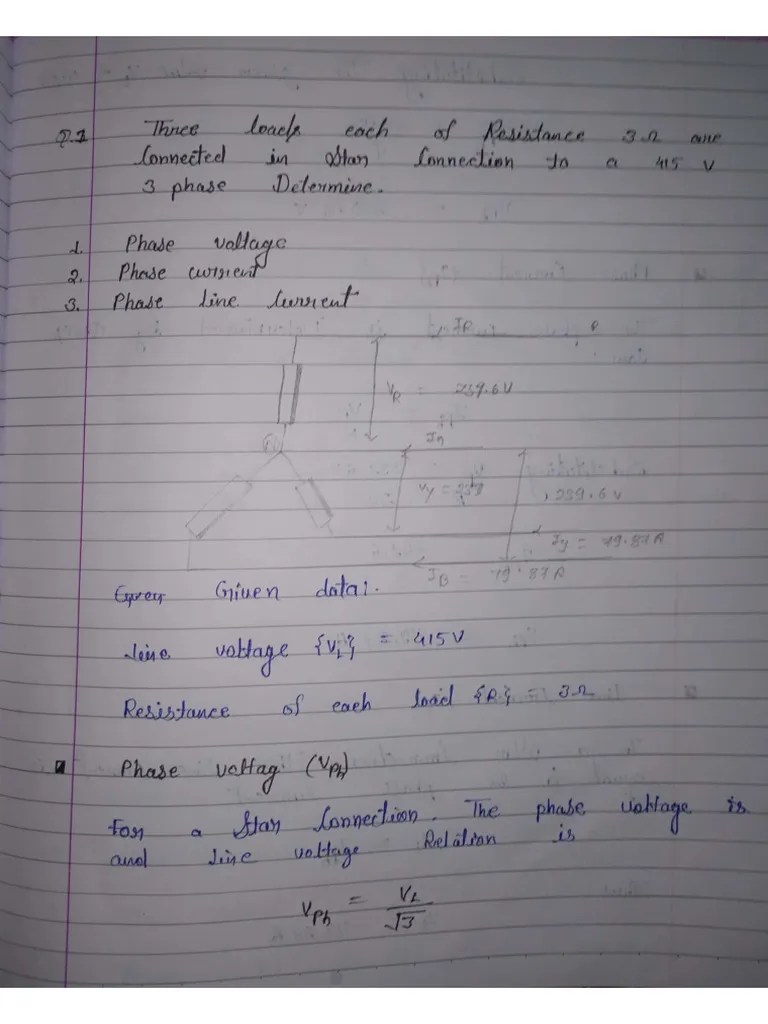 Q.1 Three loads each of Resistance 3 Ω are
Connected in Star Connection to a 415 V
3 phase Determine.
1. Phase voltage
2. Phase current
3. Phase line Current
IR R
VR = 239.6V
In
Vy = 239
239.6 V
Iy = 79.87A
IB = 79.87A
Given data:
Line voltage {VL} = 415V
Resistance of each load {R} = 3Ω
Phase voltag (Vph)
For a Star Connection. The phase voltage is
and line voltage Relation is
Vph = VL
√3